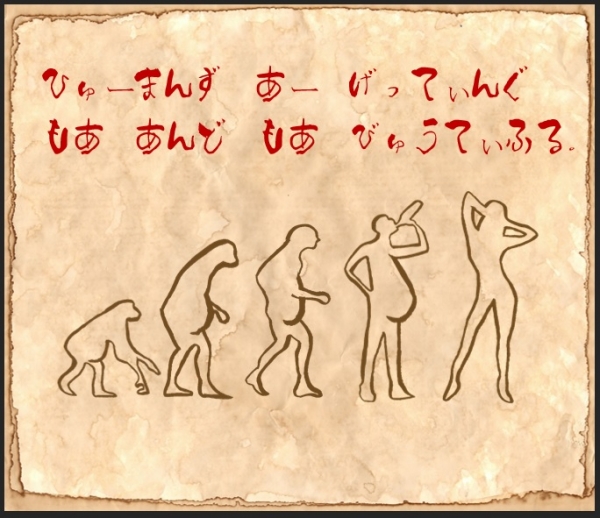 ひゅーまんず あー げってぃんぐ
もあ あんど もあ びゅうてぃふる。